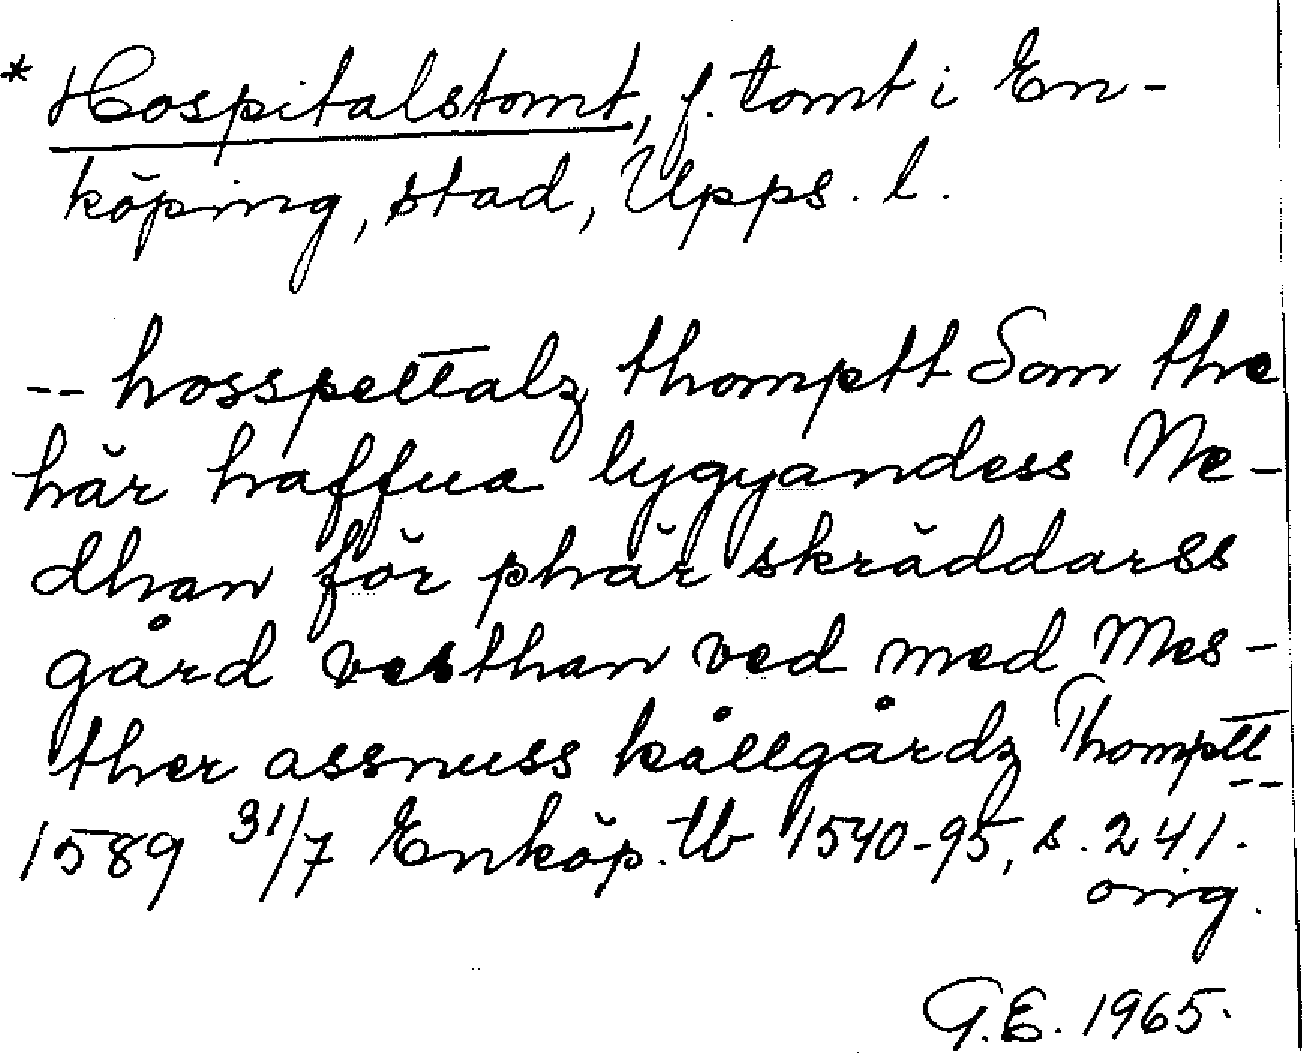 * Hospitalstomt, f. tomt i En-
köping, stad, Upps. l.
-- hosspettalz thomptt Som the
här haffua lygyandess Ne-
dhan för phär skräddarss
gård vesthan ved med Mes-
ther assmuss kållgårdz Thomptt --
1589 31/7 Enköp. tb 1540-95, s. 241.
orig.
G.E. 1965.